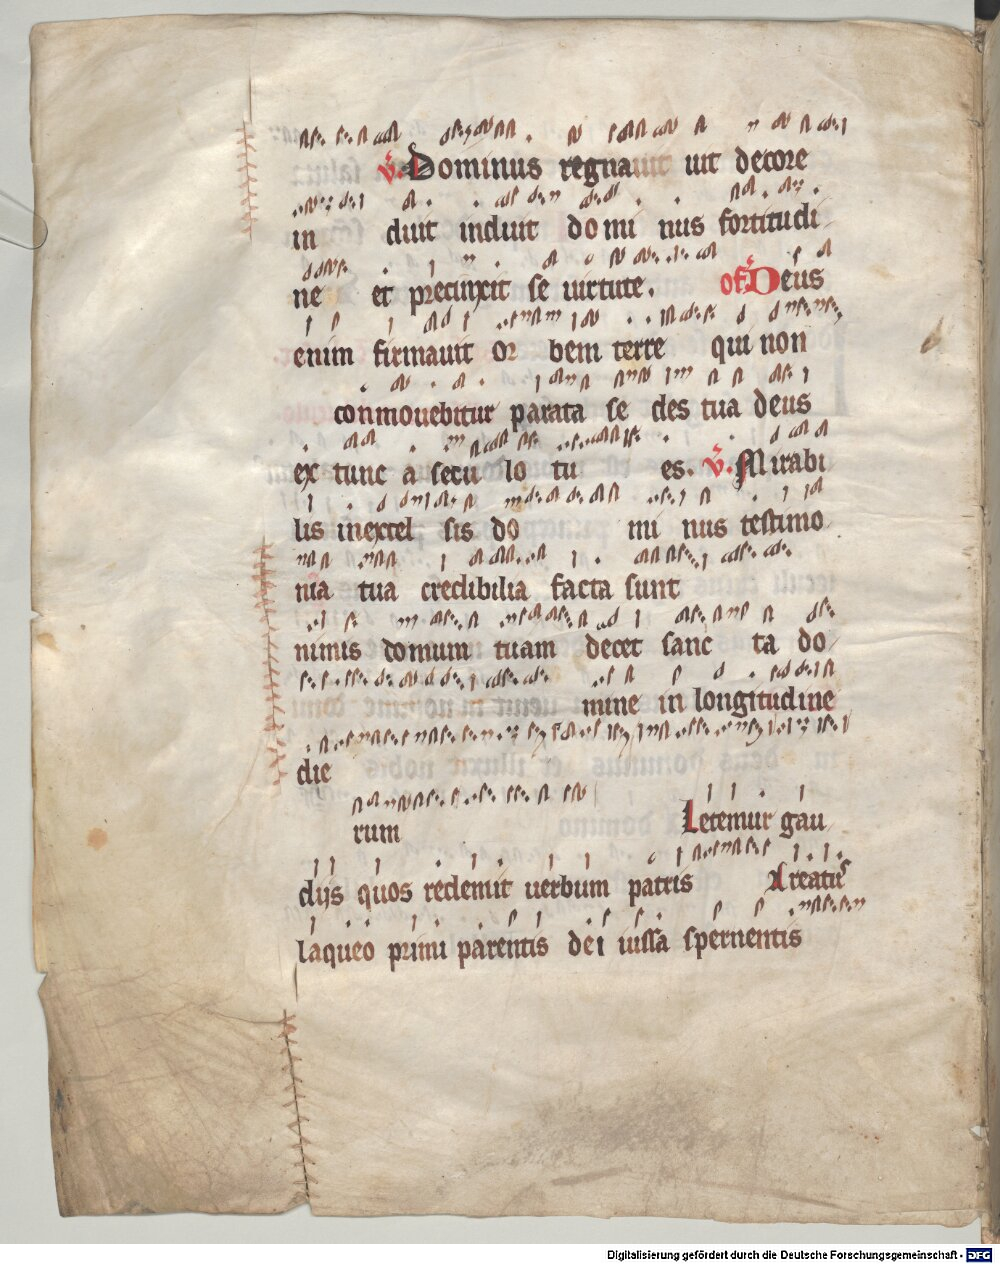 v̄. Dominus regnauit uit decore
in duit induit do mi nus fortitudi
ne et precinxit se uirtute. of Deus
enim firmauit or bem terre qui non
conmouebitur parata se des tua deus
ex tunc a secu lo tu es. v̄. Mirabi
lis inexcel sis do mi nus testimo
nia tua credibilia facta sunt
nimis domum tuam decet sanc ta do
mine in longitudine
die
rum Letemur gau
dijs quos redemit uerbum patris
laqueo primi parentis dei iussa spernentis
Digitalisierung gefördert durch die Deutsche Forschungsgemeinschaft - DFG